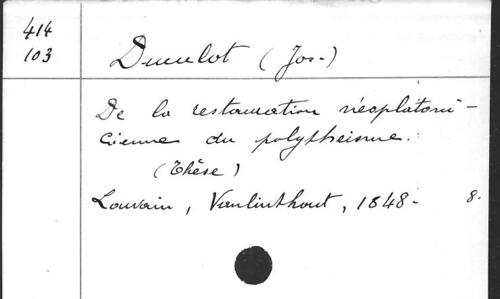 414
103
Ducelot (Jos.)
De la restauration néoplatoni-
cienne du polytheisme.
(Thèse)
Louvain, Vanlinthout, 1848. 8.